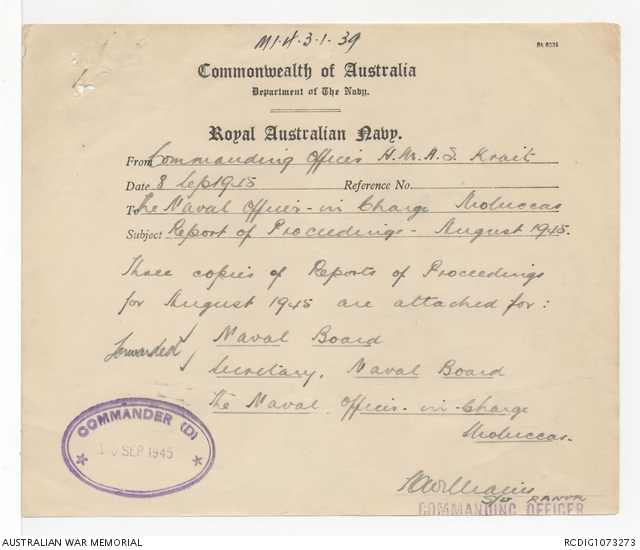 M1.4.3.1.39
Commonwealth of Australia
Department of The Navy.
Royal Australian Navy.
From Commanding Officer H.M.A.S. Krait
Date 8 Sep 1945 Reference No.
To The Naval Officer-in Charge Moluccas
Subject Report of Proceedings - August 1945.
Three copies of Reports of Proceedings
for August 1945 are attached for:
Forwarded Naval Board
Secretary, Naval Board
The Naval Officer-in-Charge
Moluccas.
COMMANDER (D)
SEP 1945
RANVR
COMMANDING OFFICER
AUSTRALIAN WAR MEMORIAL
RCDIG1073273